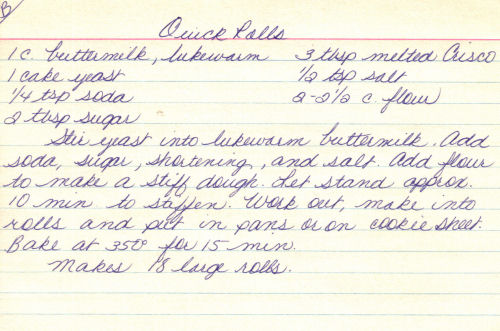 B
Quick Rolls
1 c. buttermilk, lukewarm 3 tbsp melted Crisco
1 cake yeast 1/2 tsp salt
1/4 tsp soda 2-2 1/2 c. flour
2 tbsp sugar
Stir yeast into lukewarm buttermilk. Add
soda, sugar, shortening, and salt. Add flour
to make a stiff dough. Let stand approx.
10 min to stiffen. Work out, make into
rolls and put in pans or on cookie sheet.
Bake at 350° for 15 min.
Makes 18 large rolls.